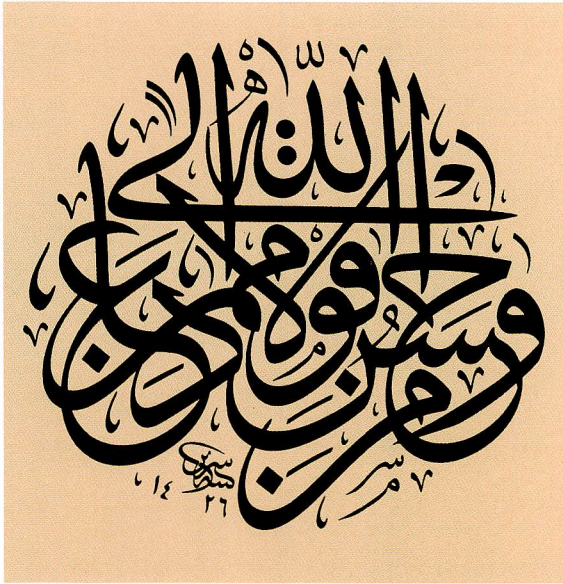 ومن أحسن قولا ممن دعا إلى الله
١٤٢٦